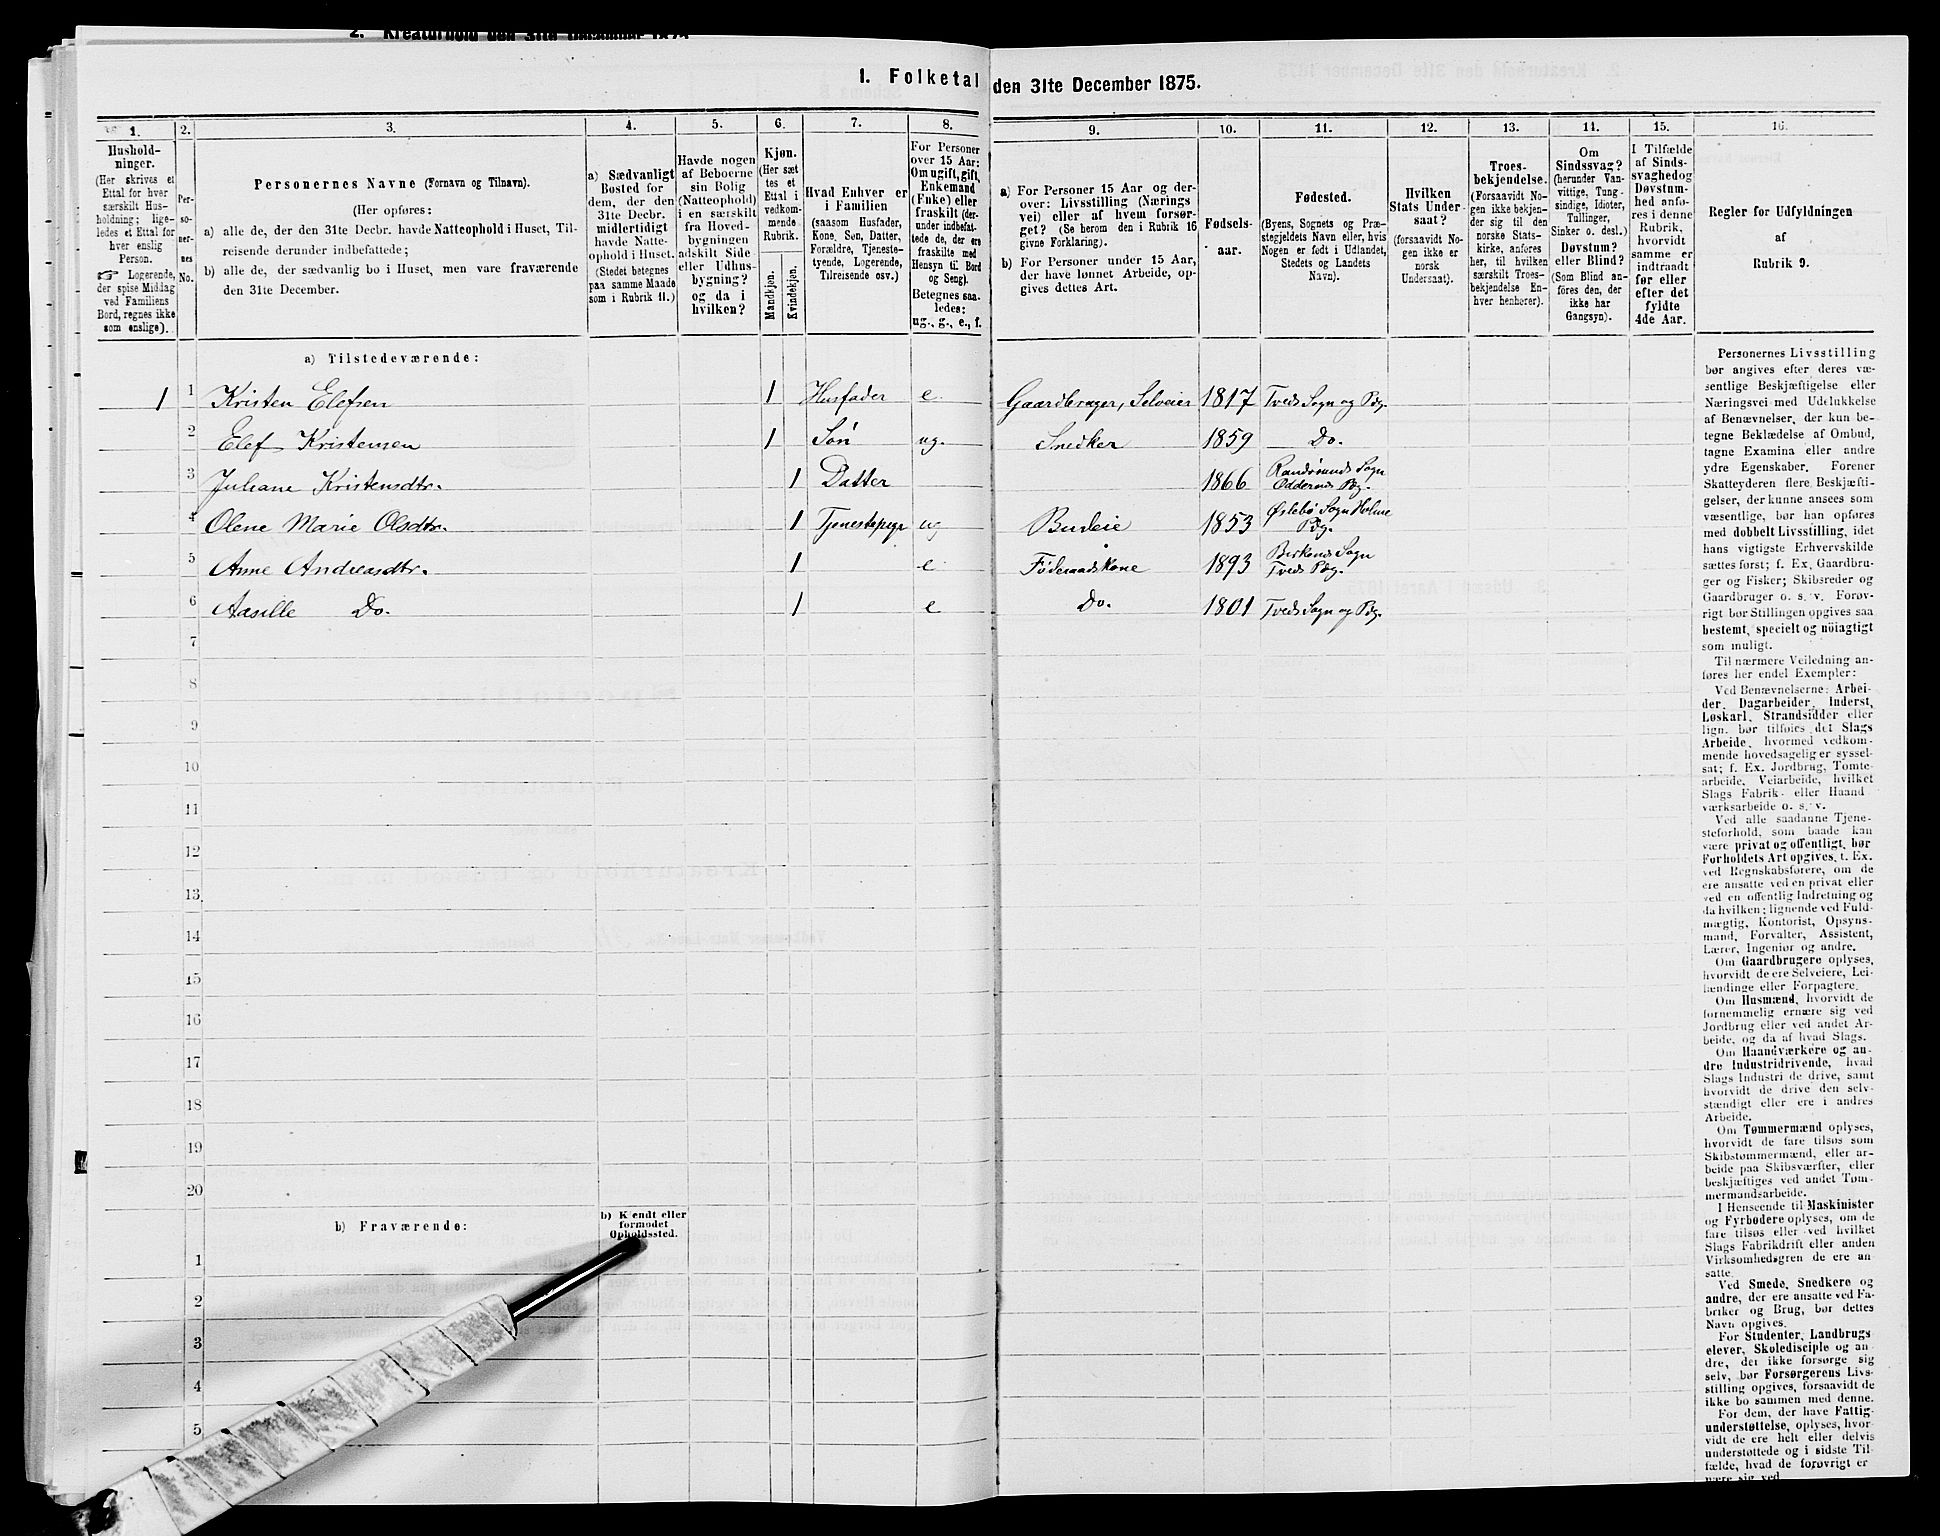 2. Kreaturhold den 31te December 1875
1. Folketal den 31te December 1875.
1. 2. 3. 4. 5. 6. 7. 8. 9. 10. 11. 12. 13. 14. 15. 16.
Hushold-
ninger.
(Her skrives et
Ettal for hver
særskilt Hus-
holdning; lige-
ledes et Ettal for
hver enslig
Person.
☞ Logerende,
der spise Middag
ved Familiens
Bord, regnes ikke
som enslige).
Per-
so-
ner-
nes
No.
Personernes Navne (Fornavn og Tilnavn).
(Her opføres:
a) alle de, der den 31te Decbr. havde Natteophold i Huset, Til-
reisende derunder indbefattede;
b) alle de, der sædvanlig bo i Huset, men vare fraværende
den 31te December.
a) Sædvanligt
Bosted for
dem, der den
31te Decbr.
midlertidigt
havde Natte-
ophold i Huset.
(Stedet betegnes
paa samme Maade
som i Rubrik 11.)
Havde nogen
af Beboerne
sin Bolig
(Natteophold)
i en særskilt
fra Hoved-
bygningen
adskilt Side-
eller Udhus-
bygning?
og da i
hvilken?
Kjøn.
(Her sæt
tes et
Ettal i
vedkom-
mende
Rubrik.
Mandkjøn.
Kvindekjøn.
Hvad Enhver er
i Familien
(saasom Husfader,
Kone, Søn, Datter,
Forældre, Tjeneste-
tyende, Logerende,
Tilreisende osv.)
For Personer
over 15 Aar:
Om ugift, gift,
Enkemand
(Enke) eller
fraskilt (der-
under indbefat-
tede de, der ere
fraskilte med
Hensyn til Bord
og Seng).
Betegnes saa-
ledes:
ug., g., e., f.
a) For Personer 15 Aar og der-
over: Livsstilling (Nærings
vei) eller af hvem forsør-
get? (Se herom den i Rubrik 16
givne Forklaring).
b) For Personer under 15 Aar,
der have lønnet Arbeide, op-
gives dettes Art.
Fødsels-
aar.
Fødested.
(Byens, Sognets og Præ-
stegjeldets Navn eller, hvis
Nogen er født i Udlandet,
Stedets og Landets
Navn).
Hvilken
Stats Under-
saat?
(forsaavidt No-
gen ikke er
norsk
Undersaat).
Troes-
bekjendelse.
(Forsaavidt No-
gen ikke bekjen-
der sig til den
norske Stats-
kirke, anføres
her, til hvilken
særskilt Troes-
bekjendelse En-
hver henhører).
Om
Sindssvag?
(herunder Van-
vittige, Tung-
sindige, Idioter,
Tullinger,
Sinker o. desl.)
Døvstum?
eller Blind?
(Som Blind an-
føres den, der
ikke har
Gangsyn).
I Tilfælde
af Sinds-
svaghed og
Døvstum-
hed anfø-
res i denne
Rubrik,
hvorvidt
samme er
indtraadt
før eller
efter det
fyldte
4de Aar.
Regler for Udfyldningen
af
Rubrik 9.
a) Tilstedeværende:
1 1 Kristen Elefsen 1 Husfader e. Gaardbruger, Selveier 1817 Tveds Sogn og Pdg.
2 Elef Kristensen 1 Søn ug. Snedker 1859 Do.
3 Juliane Kristensdtr. 1 Datter 1866 Randøsunds Sogn
Oddernes Pdg.
4 Olene Marie Olsdtr. 1 Tjenestepige ug Budeie 1853 Øslebø Sogn Holme
Pdg.
5 Anne Andreasdtr. 1 e Føderaadskone 1893 Birkens Sogn
Tveds Pdg.
6 Aasille Do. 1 e Do. 1801 Tveds Sogn og Pdg.
7
8
9
10
11
12
13
14
15
16
17
18
19
20
b) Fraværende:
b) Kjendt eller
formodet
Opholdssted.
1
2
3
4
5
Personernes Livsstilling
bør angives efter deres væ-
sentlige Beskjæftigelse eller
Næringsvei med Udelukkelse
af Benævnelser, der kun be-
tegne Beklædelse af Ombud,
tagne Examina eller andre
ydre Egenskaber. Forener
Skatteyderen flere Beskjæfti-
gelser, der kunne ansees som
væsentlige, bør han opføres
med dobbelt Livsstilling, idet
hans vigtigste Erhvervskilde
sættes først; f. Ex. Gaardbru-
ger og Fisker; Skibsreder og
Gaardbruger o. s. v. Forøv-
rigt bør Stillingen opgives saa
bestemt, specielt og nøiagtigt
som muligt.
Til nærmere Veiledning an-
føres her endel Exempler:
Ved Benævnelserne: Arbei-
der, Dagarbeider, Inderst,
Løskarl, Strandsidder eller
lign. bør tilføies det Slags
Arbeide, hvormed vedkom-
mende hovedsagelig er syssel-
sat; f. Ex. Jordbrug, Tomte-
arbeide, Veiarbeide, hvilket
Slags Fabrik- eller Haand
værksarbeide o. s. v.
Ved alle saadanne Tjene-
steforhold, som baade kan
være privat og offentligt, bør
Forholdets Art opgives, t. Ex.
ved Regnskabsførere, om de
ere ansatte ved en privat eller
ved en offentlig Indretning og
da hvilken; lignende ved Fuld-
mægtig, Kontorist, Opsyns-
mand, Forvalter, Assistent,
Lærer, Ingeniør og andre.
Om Gaardbrugere oplyses,
hvorvidt de ere Selveiere, Lei-
lændinge eller Forpagtere.
Om Husmænd, hvorvidt de
fornemmelig ernære sig ved
Jordbrug eller ved andet Ar-
beide, og da af hvad Slags.
Om Haandværkere og an-
dre Industridrivende, hvad
Slags Industri de drive, samt
hvorvidt de drive den selv-
stændigt eller ere i andres
Arbeide.
Om Tømmermænd oplyses,
hvorvidt de fare tilsøs som
Skibstømmermænd, eller ar-
beide paa Skibsværfter, eller
beskjæftiges ved andet Tøm-
mermandsarbeide.
I Henseende til Maskinister
og Fyrbødere oplyses, om de
fare tilsøs eller ved hvilket
Slags Fabrikdrift eller anden
Virksomhedsgren de ere an-
satte.
Ved Smede, Snedkere og
andre, der ere ansatte ved Fa-
briker og Brug, bør dettes
Navn opgives.
For Studenter, Landbrugs
elever, Skoledisciple og an-
dre, der ikke forsørge sig
selv, bør Forsørgerens Livs-
stilling opgives, forsaavidt de
ikke bo sammen med denne.
For dem, der have Fattig-
understøttelse, oplyses, hvor-
vidt de ere helt eller delvis
understøttede og i sidste Til-
fælde, hvad de forøvrigt er
nære sig ved